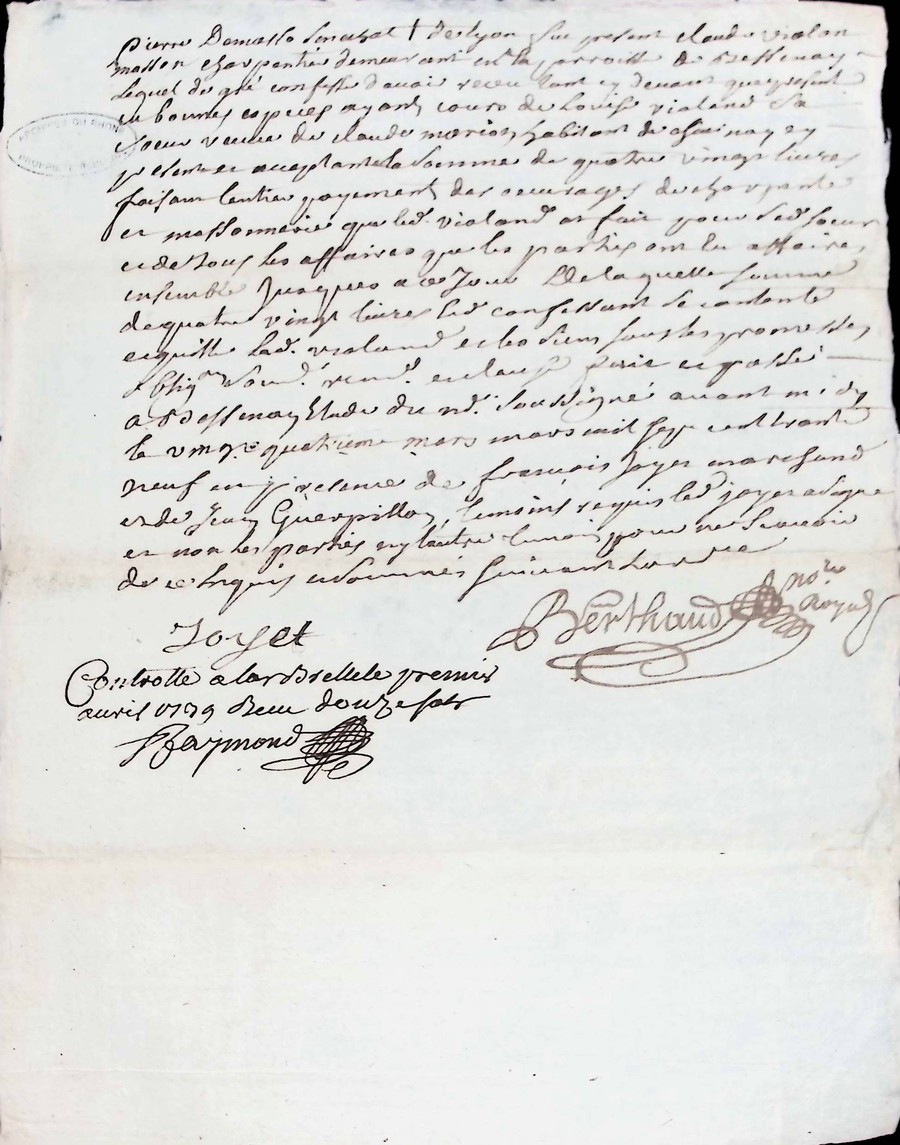 Pierre Demasso senechal † de Lyon fut present claude violan
masson charpentié demeurant en la parroisse de Bessenay
Lequel de gré confesse d'avoir receu tant cy devant que presentt
en bonnes especes ayant cours de Louise violand sa
soeur veuve de claude marion habitant de cy
presente et acceptante la somme de quatre vingt livres
faisant lentier payement des oeuvrages de charpante
et massonnerie que led. violand at fait pour sad. soeur
et de tous les affaires que les parties ont eu affaires
ensemble Jusques a ce Jour De laquelle somme
de quatre vingt livres led. confessant se contente
et quitte lad. violand et les siens sous les promesses
oblig.on soum.s renon. et clau.s fait et passé
a Bessenay Etude du nr.e soussigné avant midy
le vingt quatrieme mars mil sept cent trante
neuf en presence de françois Joyet marchand
et de Jean Guerpillon, temoins requis led. joyet a signé
et non les parties ny lautre temoin pour ne scavoir
de ce Enquis et sommés suivant lordre
Berthaud no.re Royal
Joyet
Controllé a larbrelle le premier
avril 1739 Receu douze sols
Raymond
ARCHIVES DU RHONE
PROPRIÉTÉ PUBLIQUE